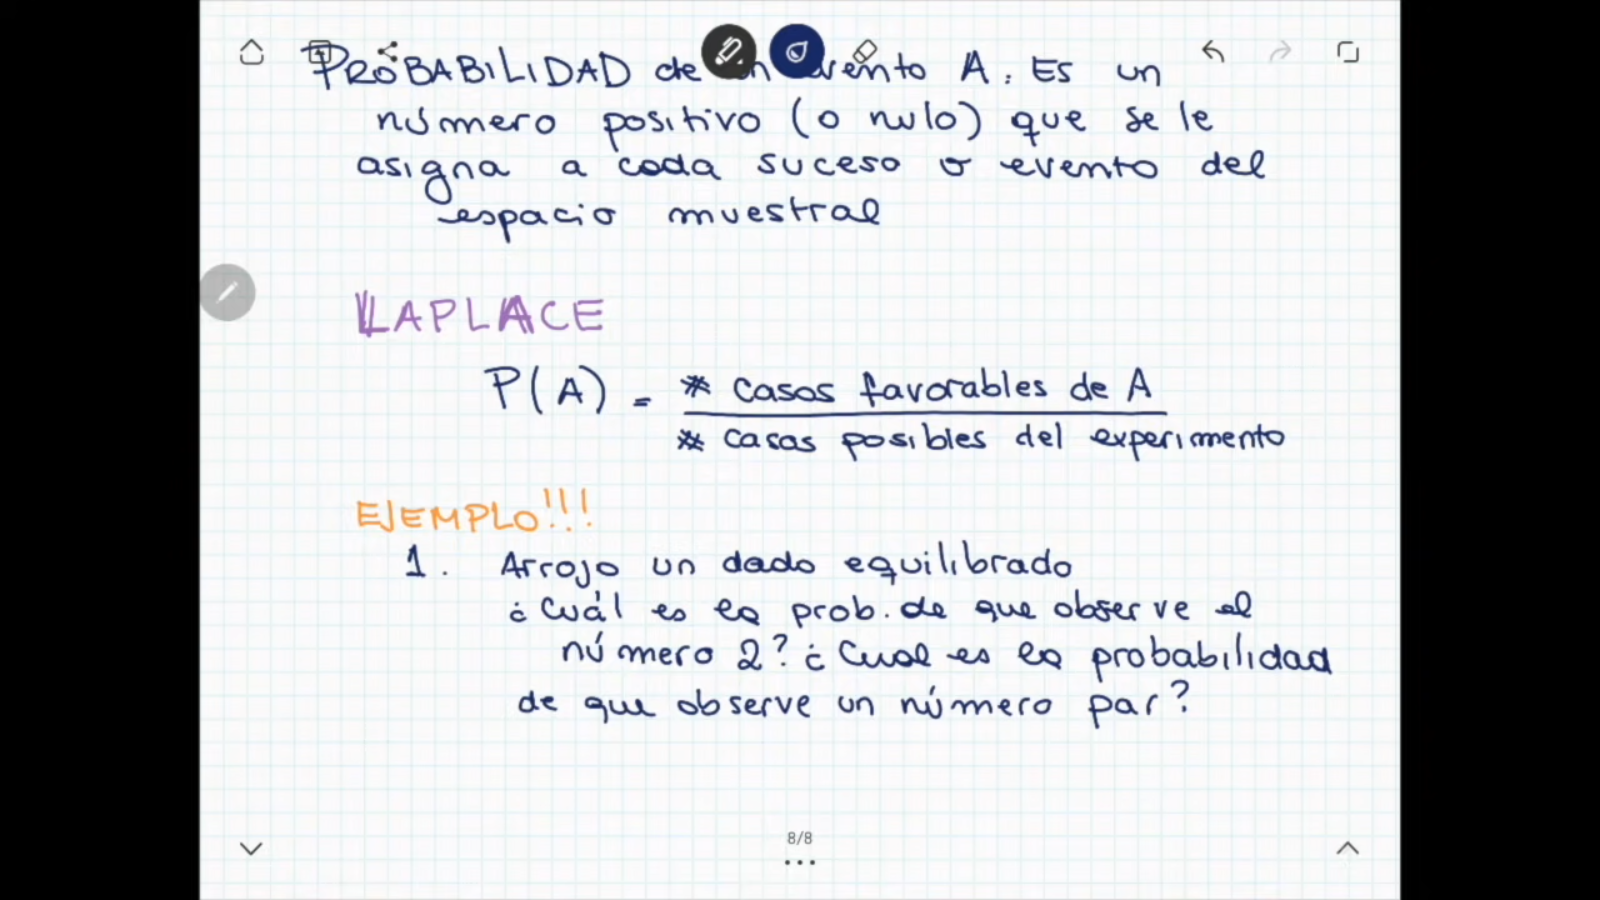 PROBABILIDAD de un evento A: Es un
número positivo (o nulo) que se le
asigna a cada suceso o evento del
espacio muestral
LAPLACE
P(A) = # casos favorables de A
# casos posibles del experimento
EJEMPLO!!!
1. Arrojo un dado equilibrado
¿Cuál es la prob. de que observe el
número 2? ¿Cual es la probabilidad
de que observe un número par?
8/8